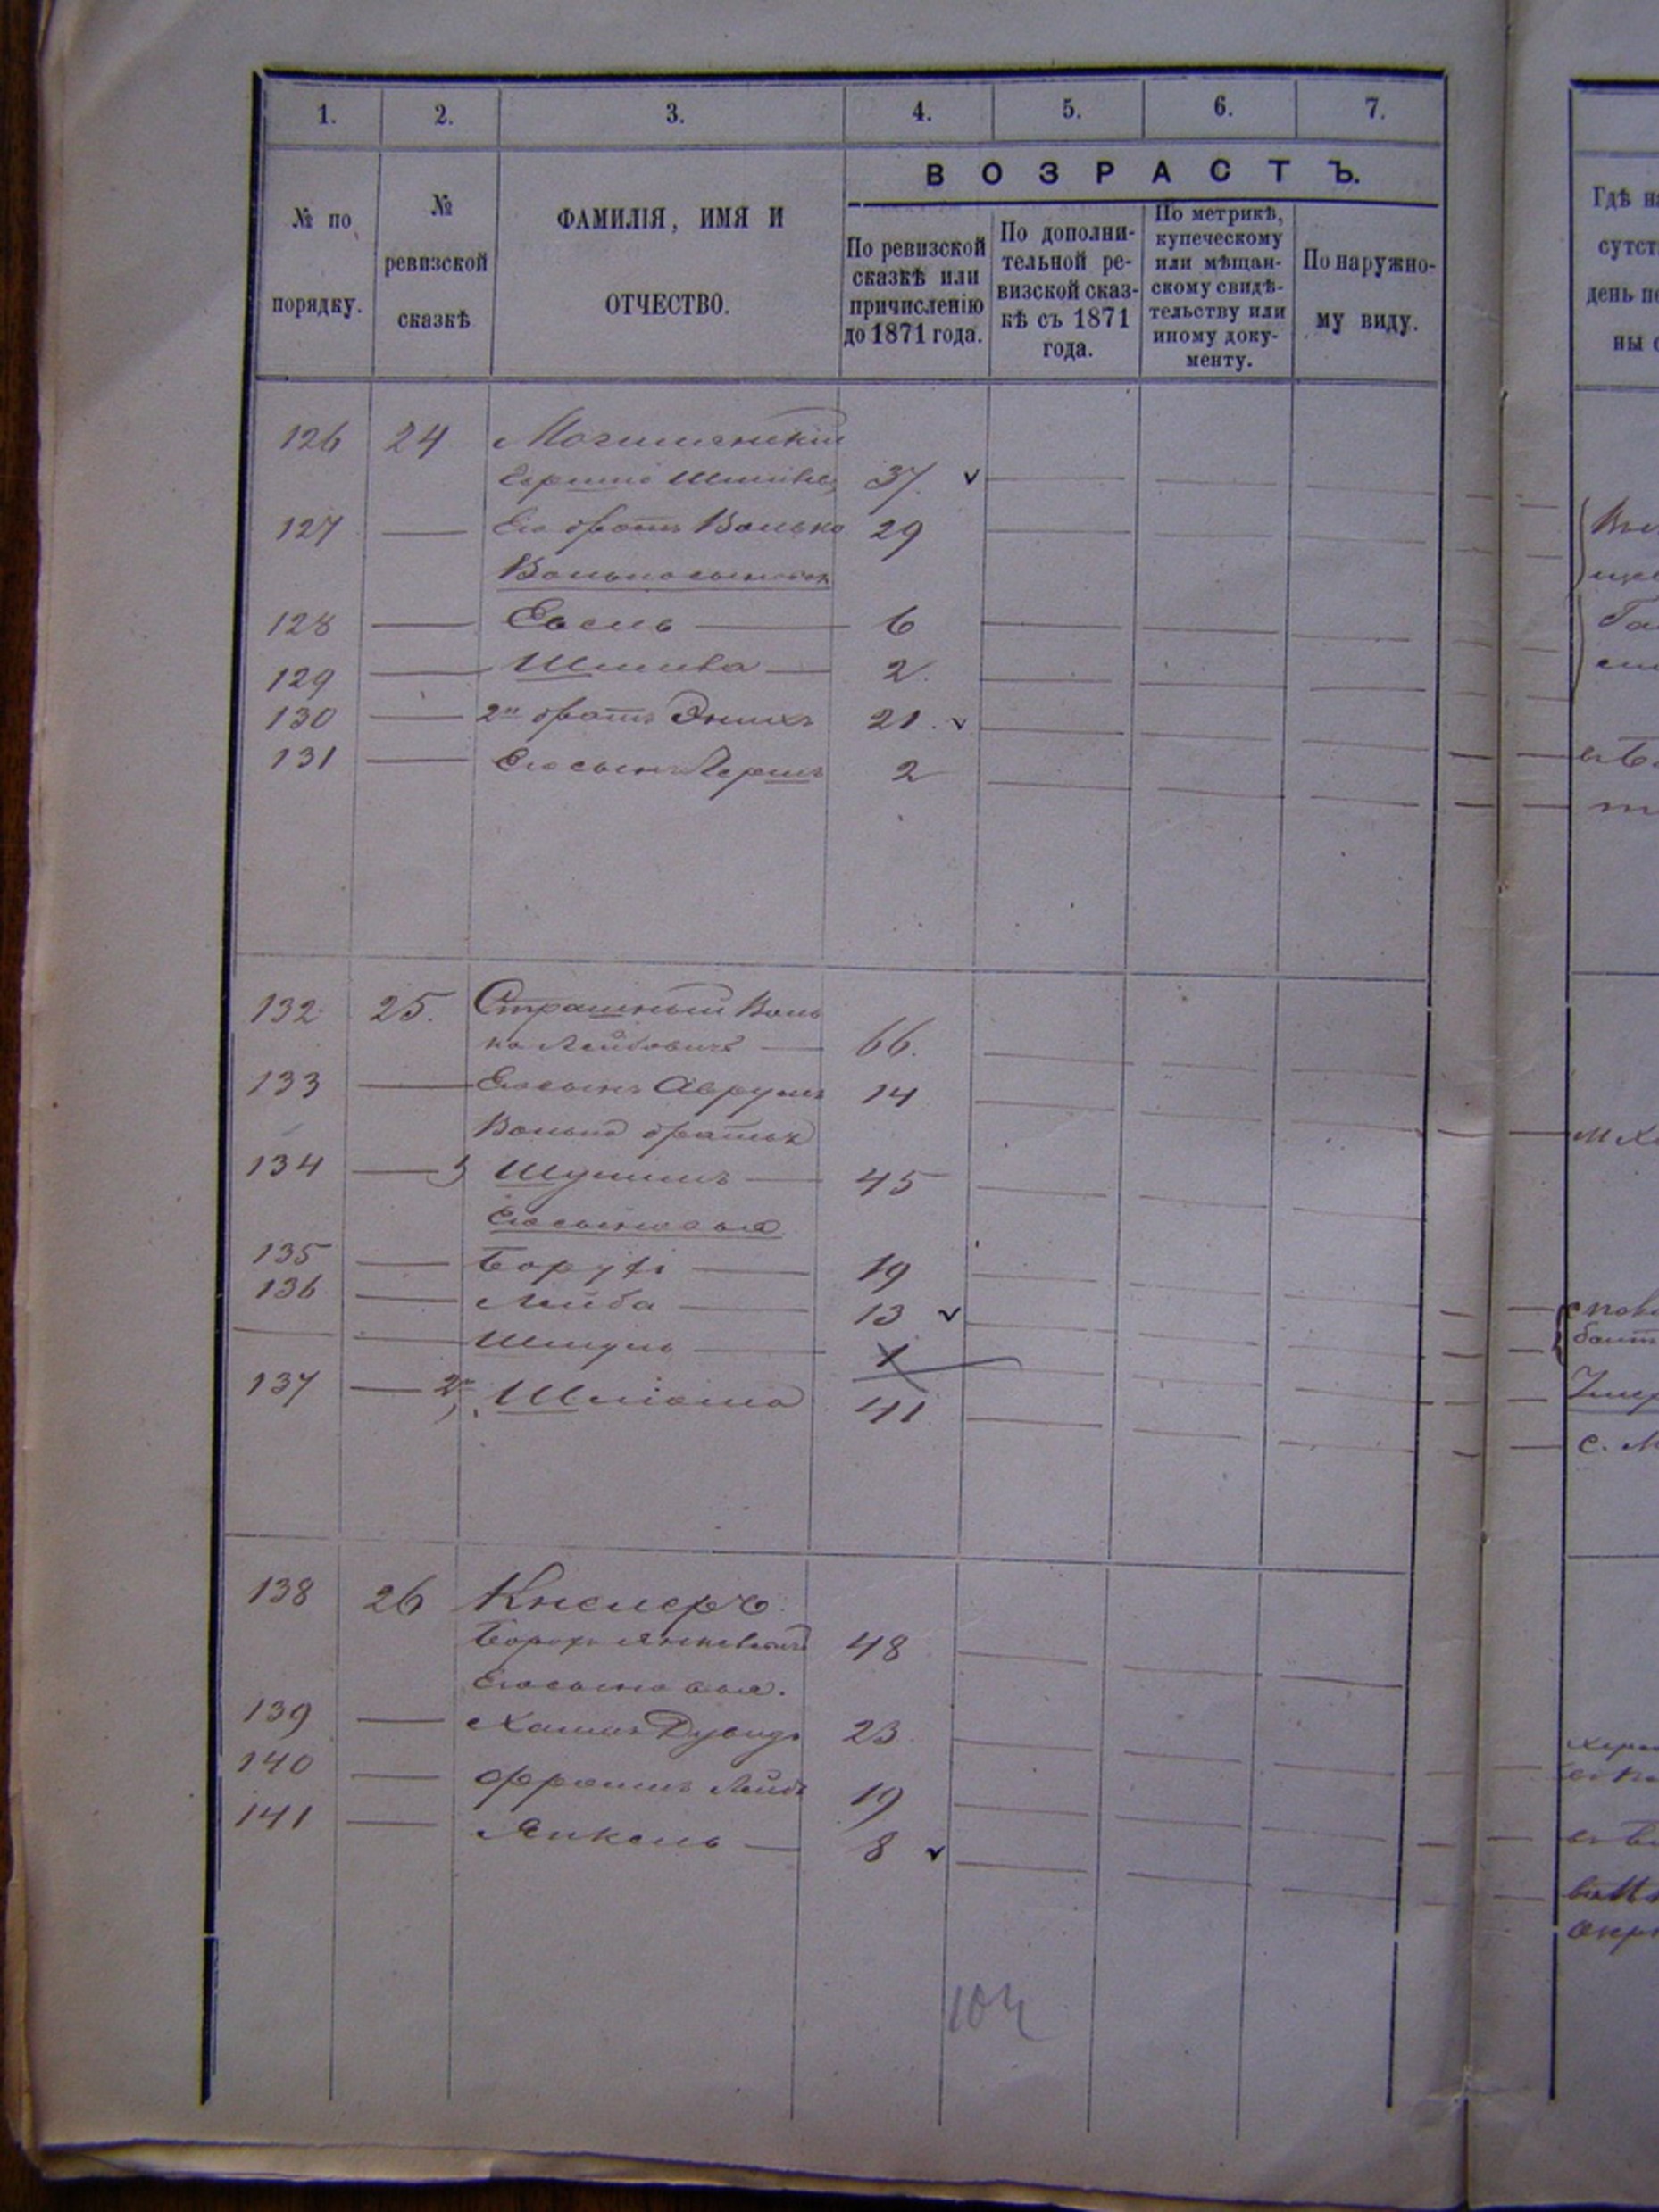 1. 2. 3. 4. 5. 6. 7.
№ по порядку.
№ ревизской сказкѣ
ФАМИЛІЯ, ИМЯ И ОТЧЕСТВО.
ВОЗРАСТЪ.
По ревизской сказкѣ или причисленію до 1871 года.
По дополнительной ревизской сказкѣ съ 1871 года.
По метрикѣ, купеческому или мѣщанскому свидѣтельству или иному документу.
По наружному виду.
126 24
37
127 — Его братъ Волько 29
128 — Евель — 6
129 — Шмива — 2
130 — 2й братъ Энихъ 21
131 — Его сынъ Лершъ 2
132 25. Страшный Воль
ко Лейбовичъ — 66.
133 — Его сынъ Аврумъ 14
Волька братья
134 — 1, Шулимъ — 45
Его сыновья
135 — Борухъ — 19
136 — Лейба — 13
— — Шмуль — 1
137 — 2й, Шліома 41
138 26 Кнелеръ
Борохъ Янкелевичъ 48
Его сыновья.
139 — Хаимъ Дувидъ 23
140 — Фроимъ Лейбъ 19
141 — Янкель — 8
104
Гдѣ на
сутст
день пе
ны с